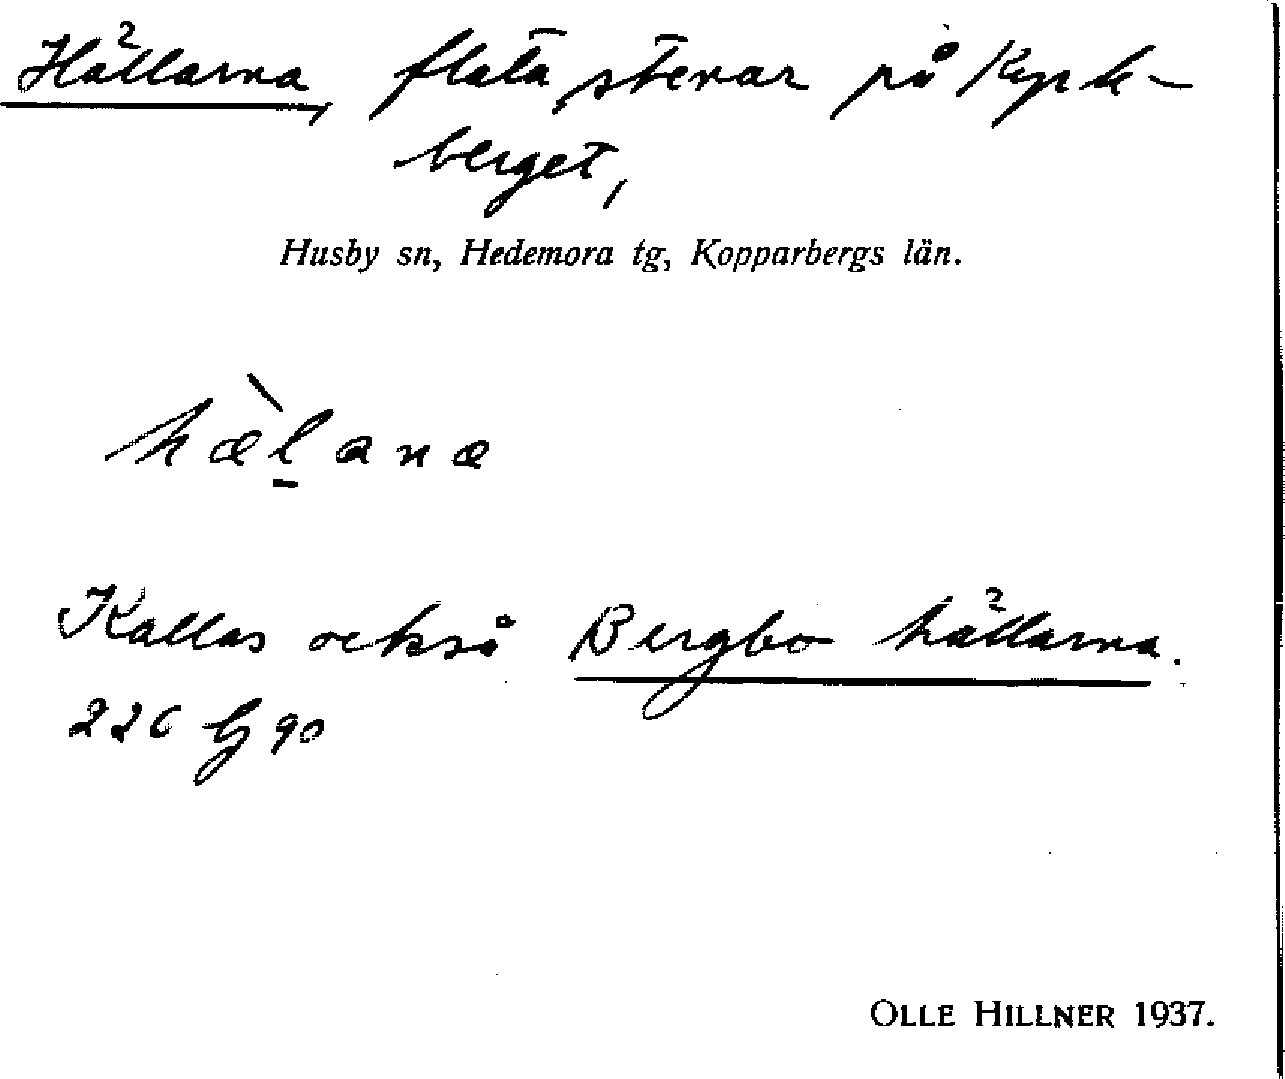 Hällarna, flata stenar på Kyrk-
berget,
Husby sn, Hedemora tg, Kopparbergs län.
hæ̀l̠anæ
Kallas också Bergbo hällarna.
226 Hj 90
OLLE HILLNER 1937.